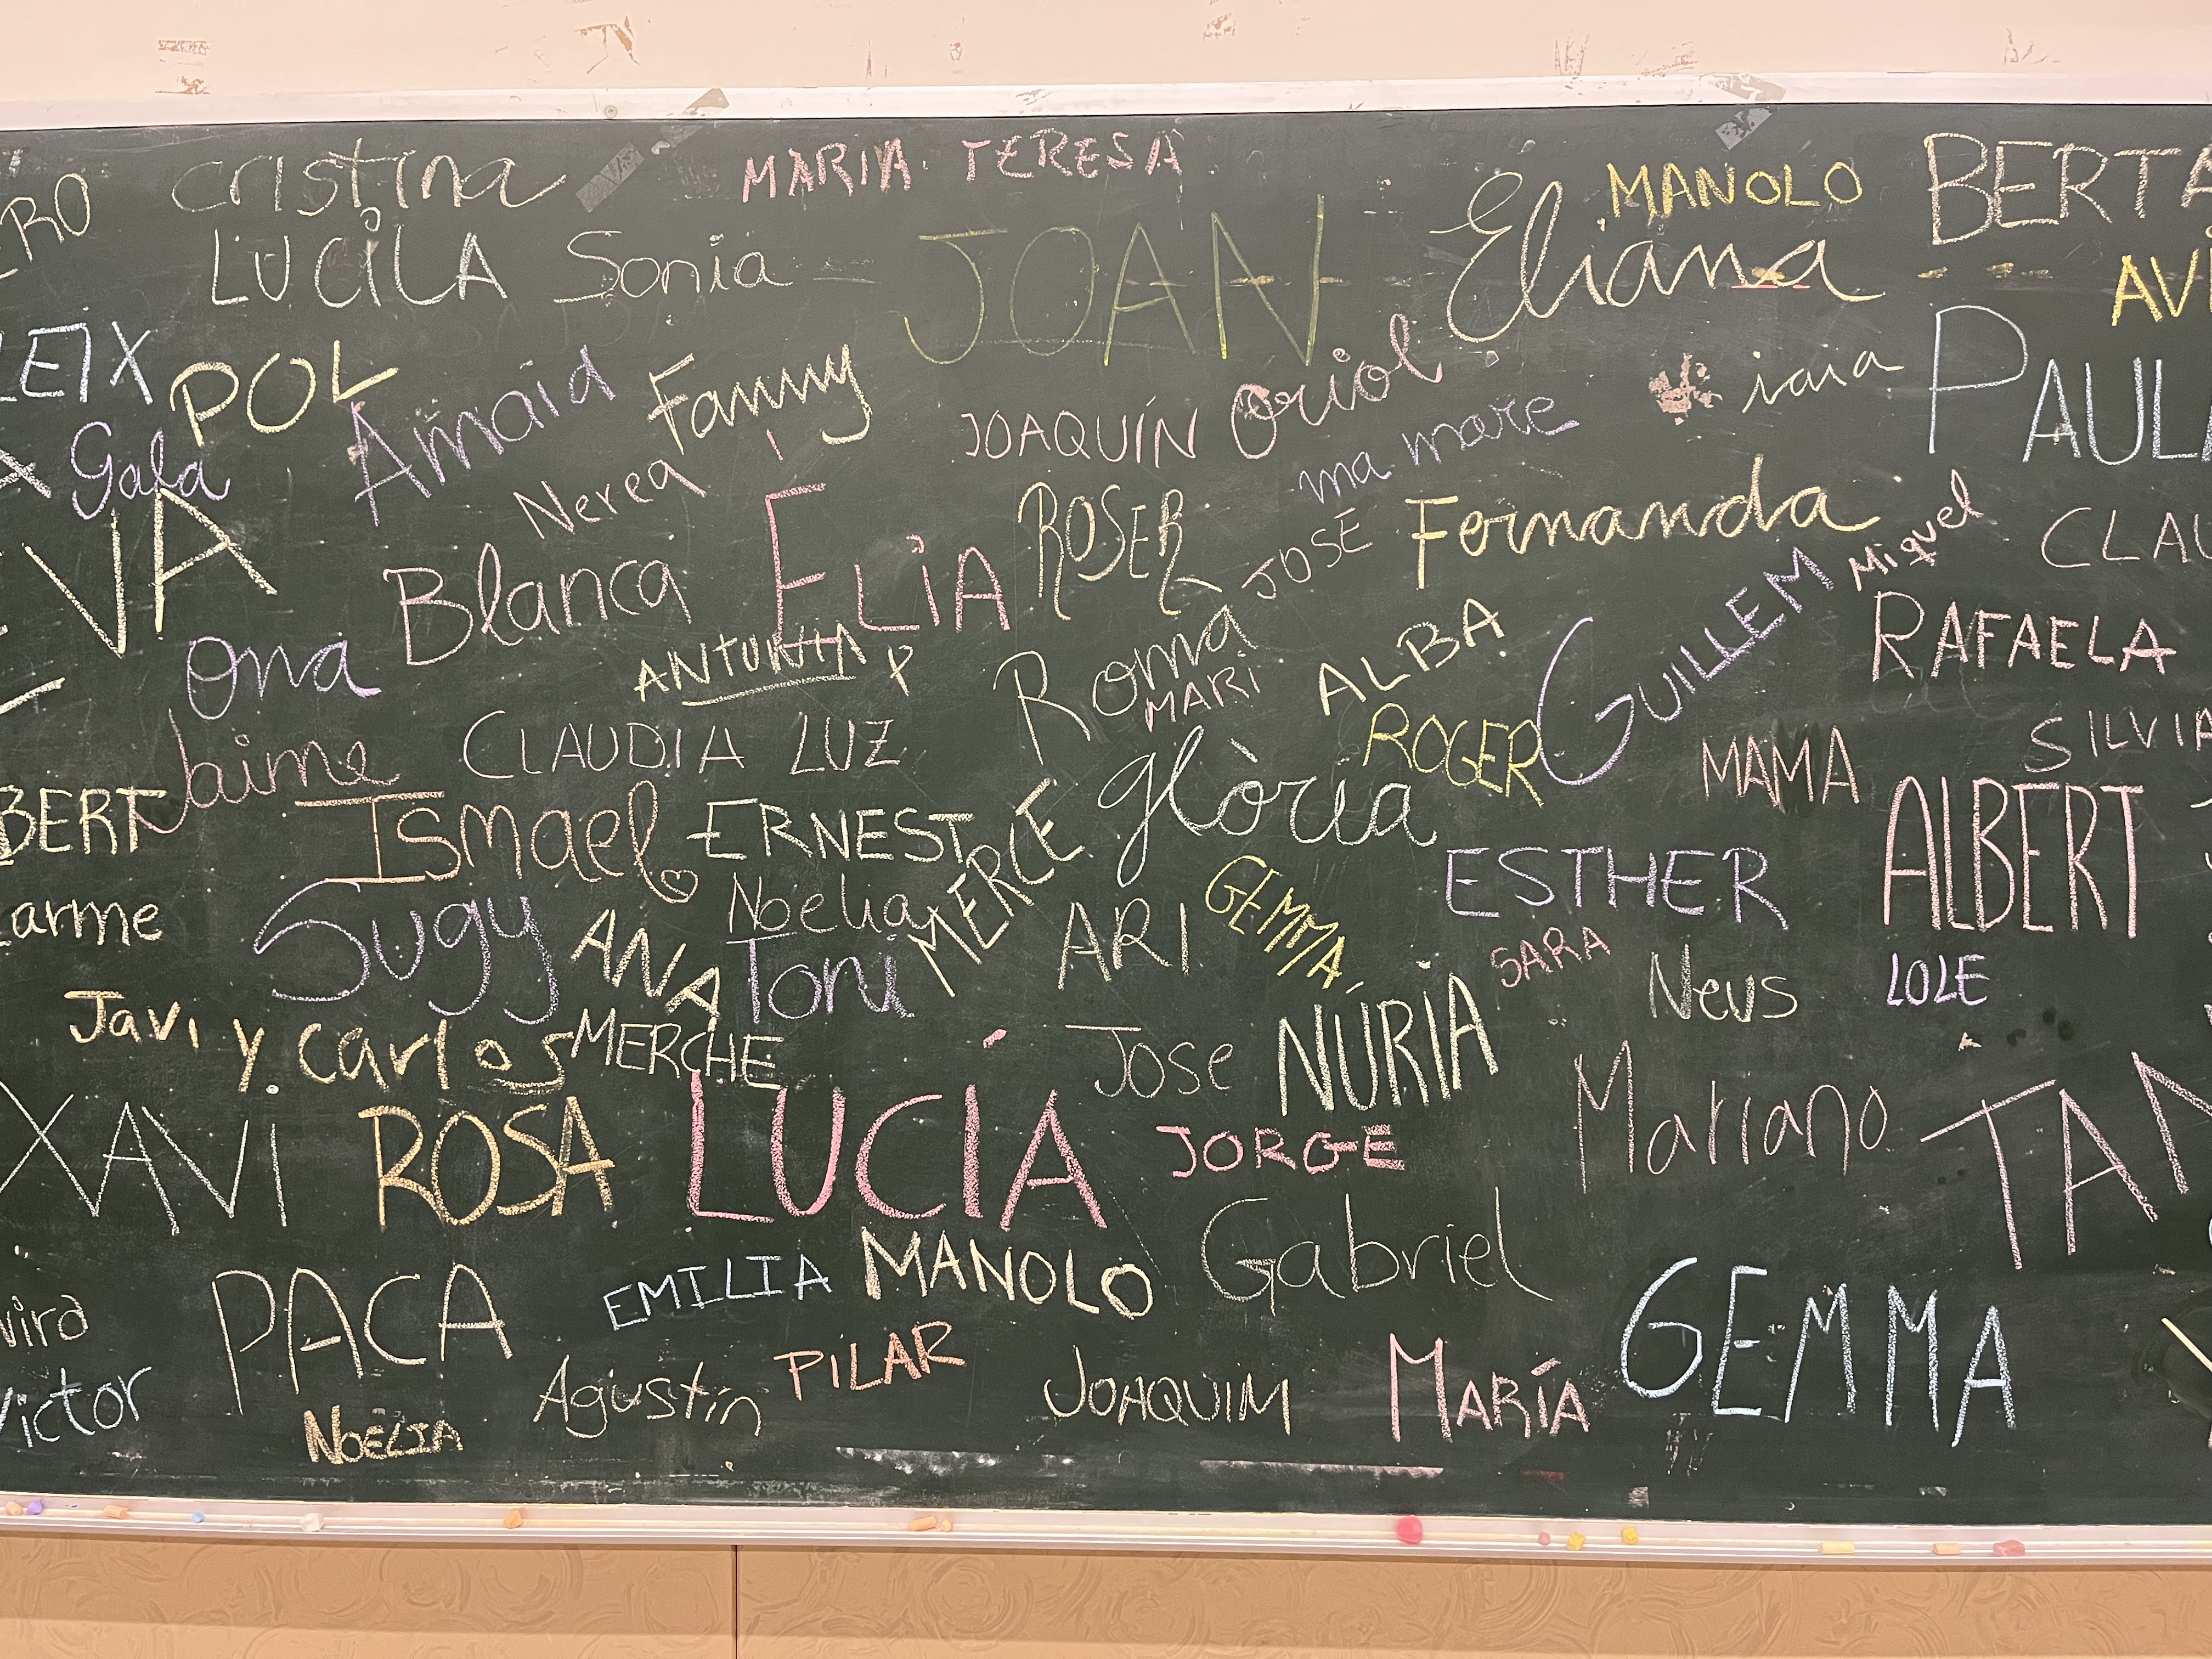 cristina
MARIA TERESA
MANOLO
BERTA
RO
LUCILA
Sonia
JOAN
Eliana
AVI
LEIX
POL
Arnaid
Fanny
JOAQUÍN
Oriol
iaia
PAULA
Gala
Nerea
ma mare
VA
Blanca
ELIA
ROSER
JOSE
Fernanda
Miquel
CLAU
Ona
ANTONIA
Roma
MARI
ALBA
GUILLEM
RAFAELA
Jaime
CLAUDIA
LUZ
glòria
ROGER
MAMA
SILVIA
BERT
Ismael
ERNEST
MERCE
ESTHER
ALBERT
arme
Sugy
ANA
Noelia
Toni
ARI
GEMMA
SARA
Neus
LOLE
Javi y Carlos
MERCHE
Jose
NÚRIA
Mariano
XAVI
ROSA
LUCÍA
JORGE
TAN
vira
PACA
EMILIA
MANOLO
Gabriel
GEMMA
Victor
NOELIA
Agustín
PILAR
JOAQUIM
MARÍA